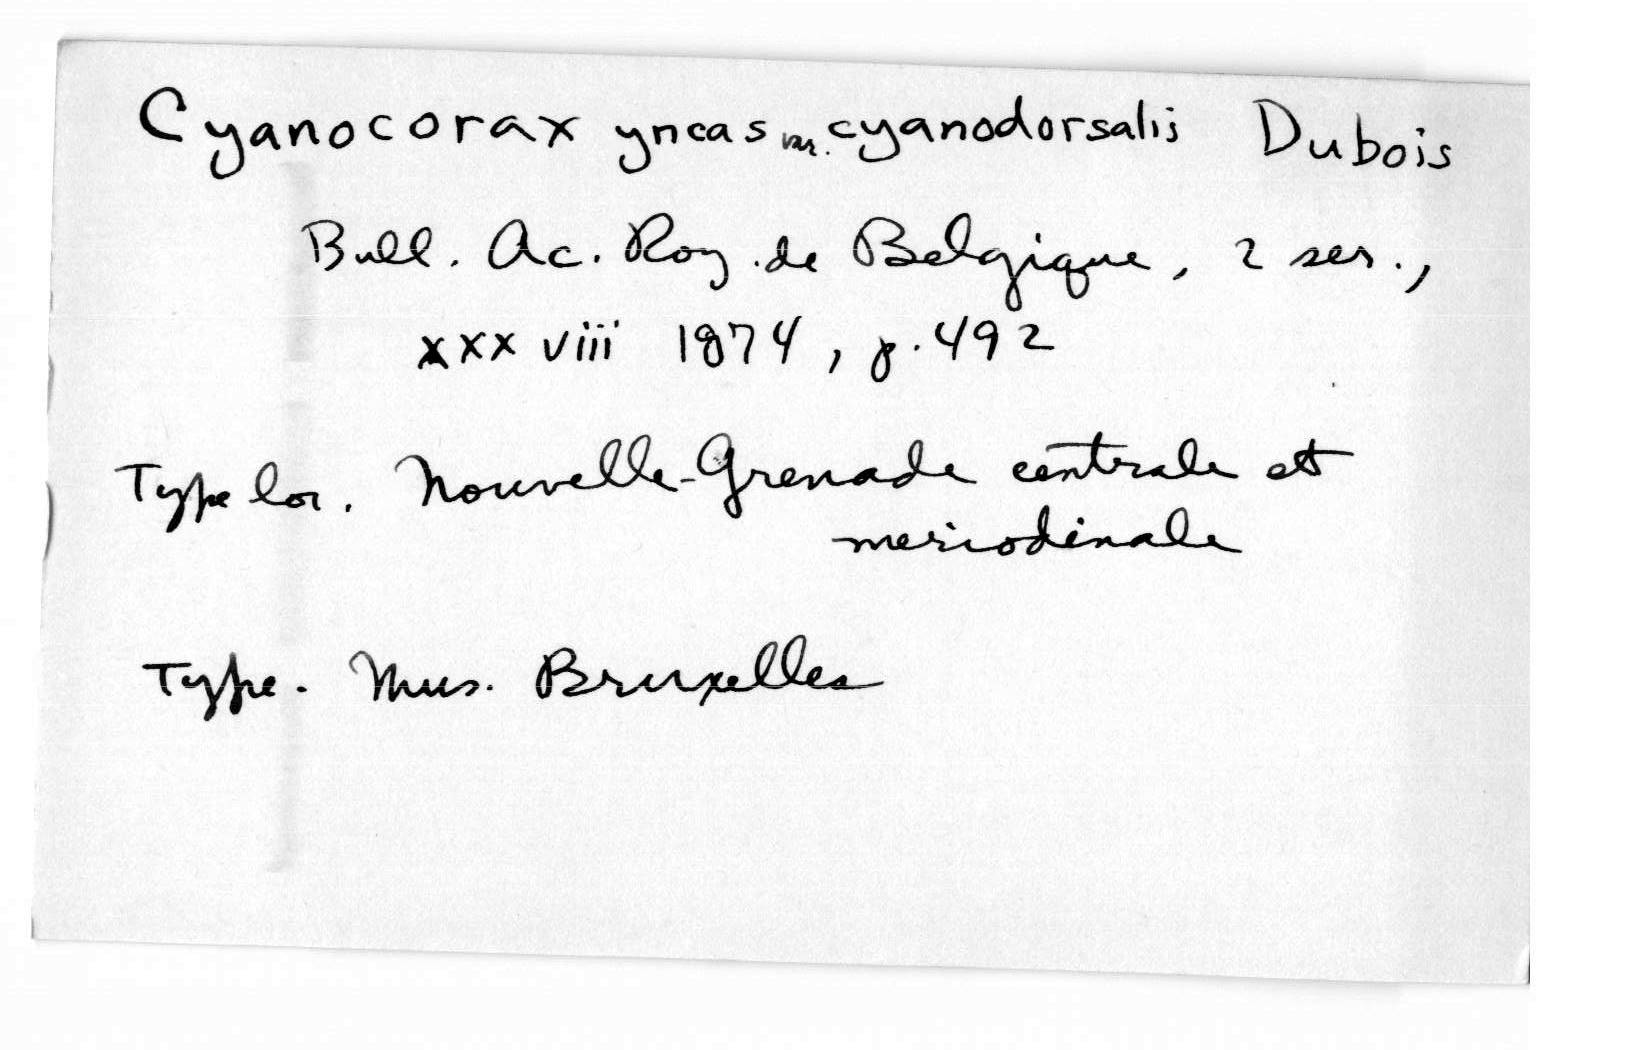 Cyanocorax yncas var. cyanodorsalis Dubois
Bull. Ac. Roy. de Belgique, 2 ser.,
xxx viii 1874, p. 492
Type loc. Nouvelle-Grenade centrale et
meriodinale
Type. Mus. Bruxelles